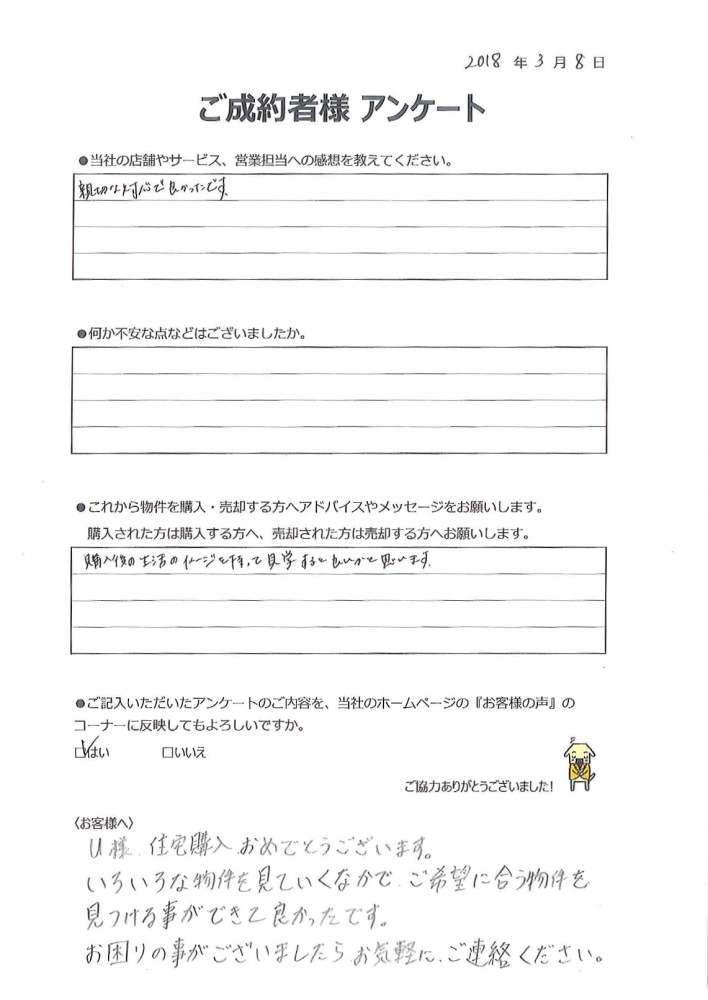 2018 年 3 月 8 日
ご成約者様 アンケート
●当社の店舗やサービス、営業担当への感想を教えてください。
親切な対応で良かったです。
●何か不安な点などはございましたか。
●これから物件を購入・売却する方へアドバイスやメッセージをお願いします。
購入された方は購入する方へ、売却された方は売却する方へお願いします。
購入後の生活のイメージを持って見学すると良いかと思います。
●ご記入いただいたアンケートのご内容を、当社のホームページの『お客様の声』の
コーナーに反映してもよろしいですか。
☑はい □いいえ
ご協力ありがとうございました!
〈お客様へ〉
U様 住宅購入おめでとうございます。
いろいろな物件を見ていくなかで、ご希望に合う物件を
見つける事ができて良かったです。
お困りの事がございましたらお気軽に、ご連絡ください。